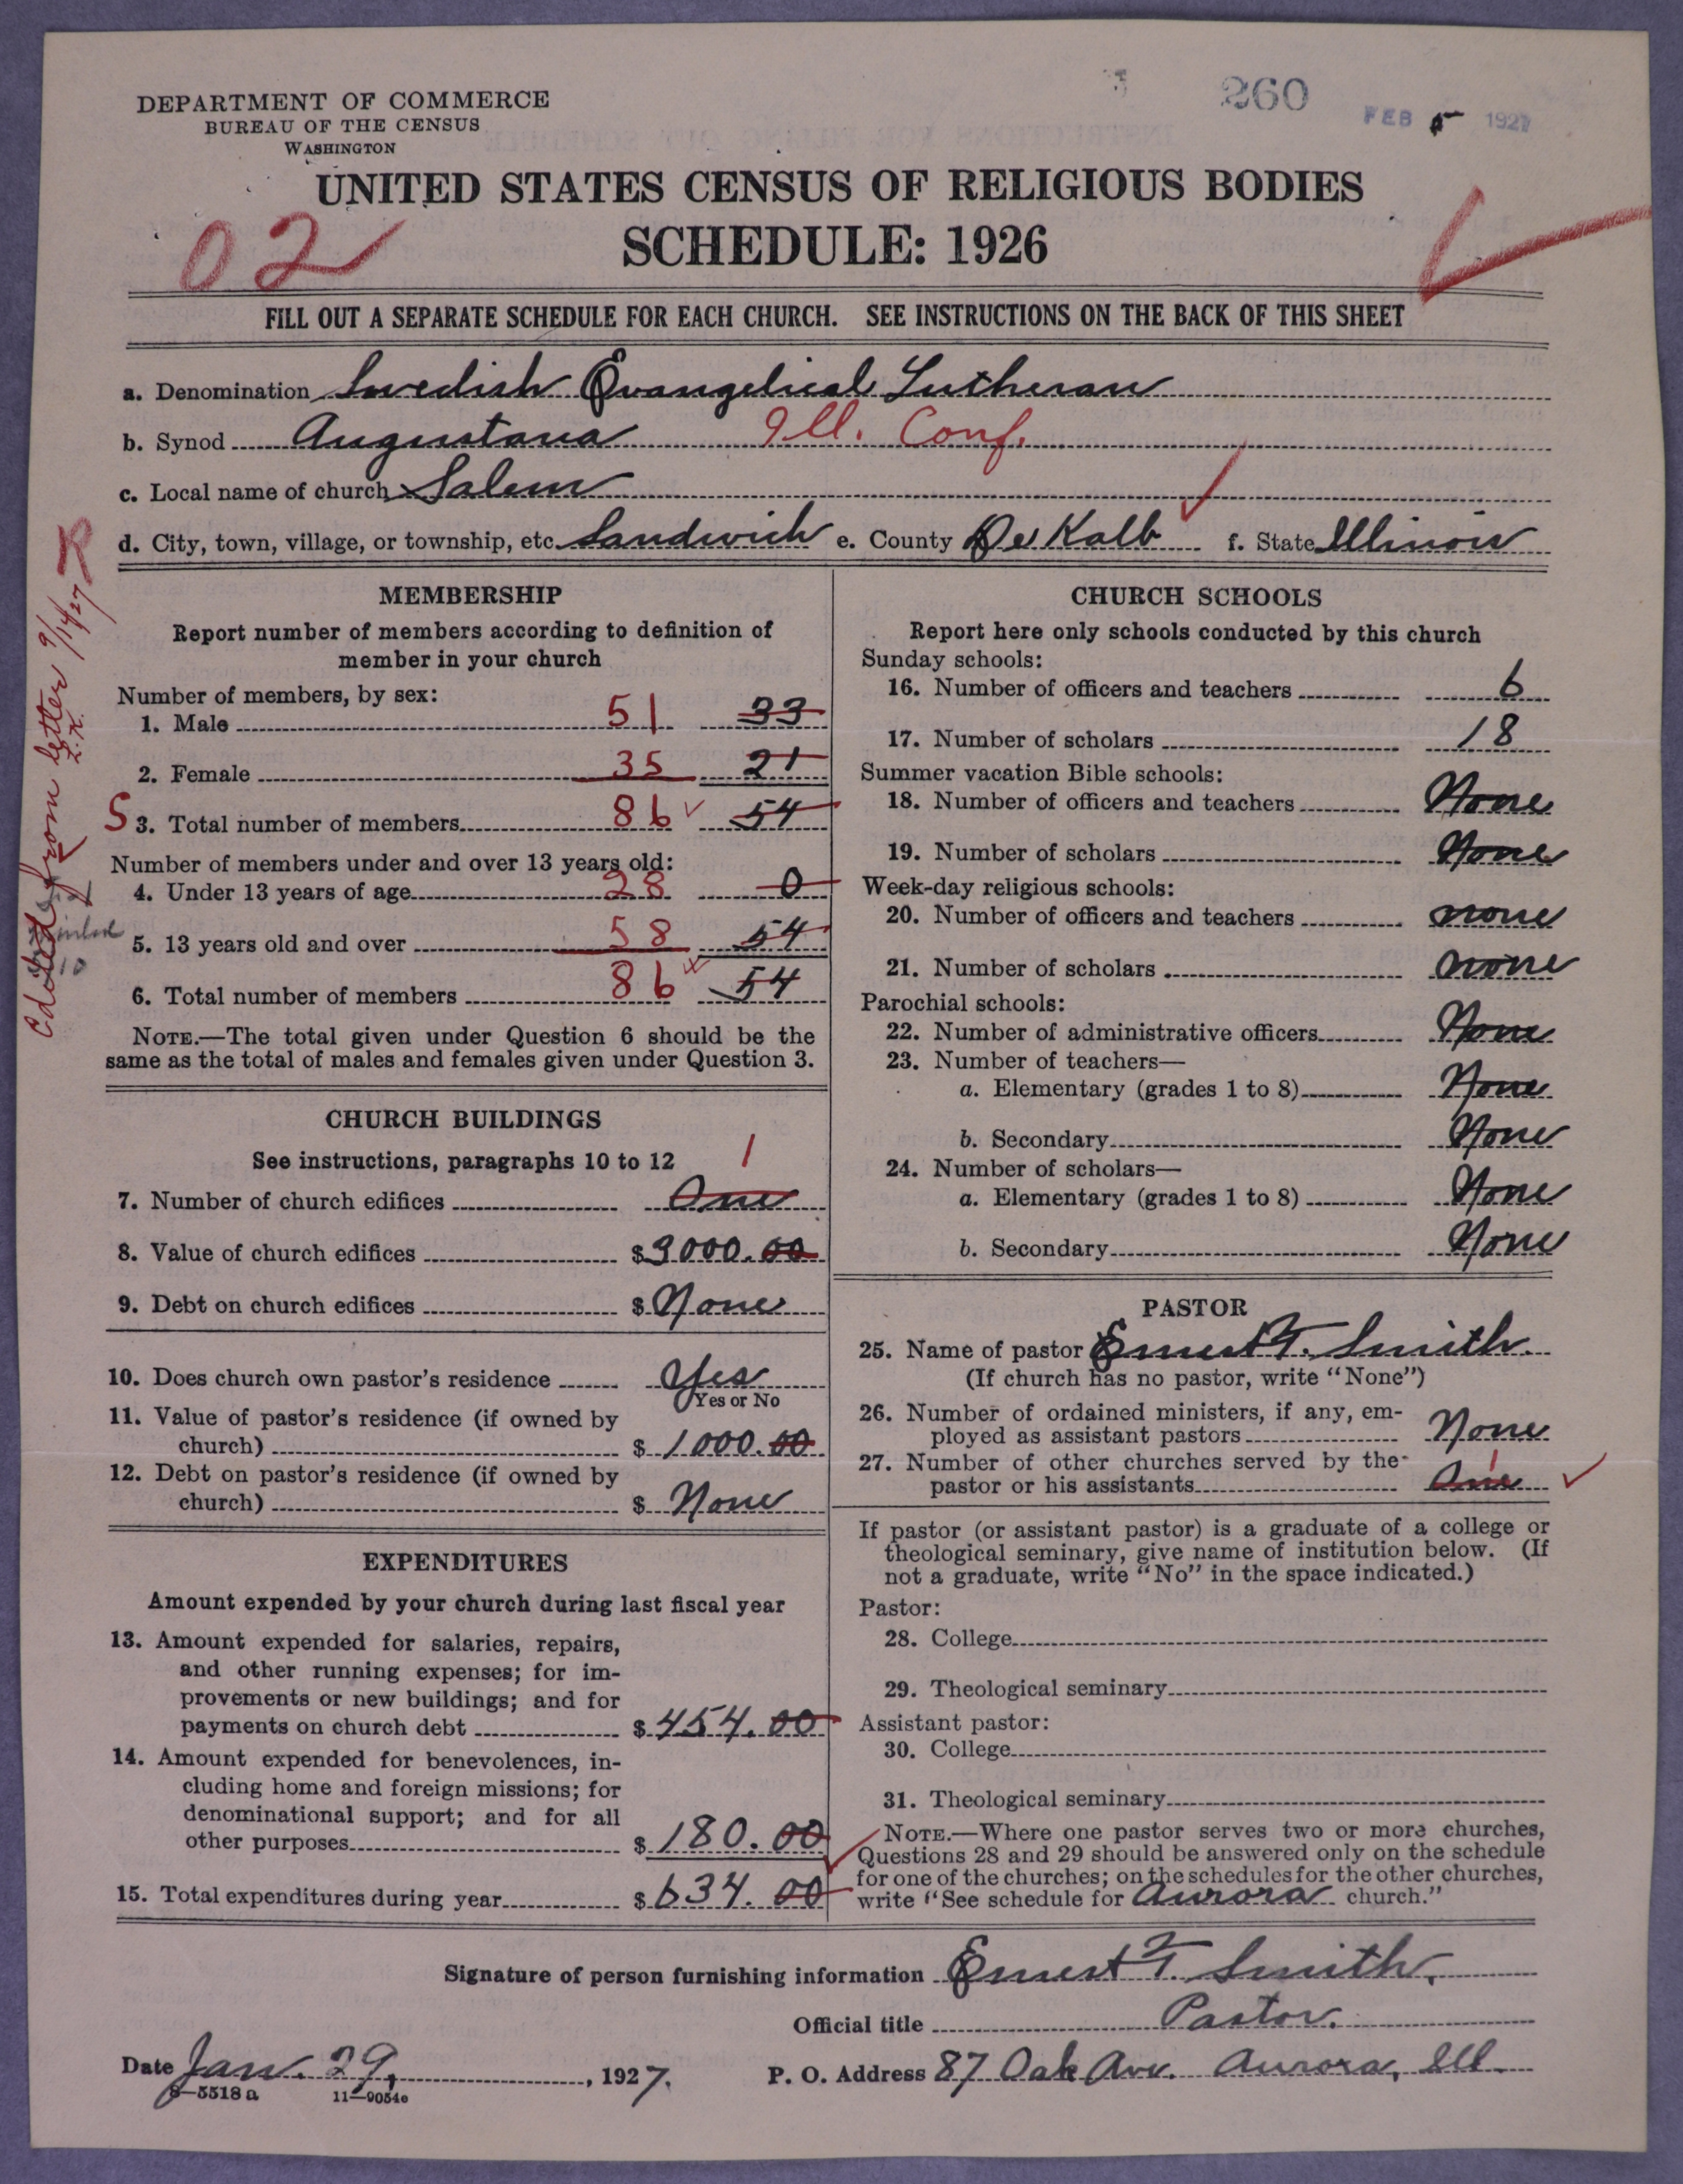 260
FEB 5 1927
DEPARTMENT OF COMMERCE
BUREAU OF THE CENSUS
WASHINGTON
UNITED STATES CENSUS OF RELIGIOUS BODIES
02
SCHEDULE: 1926
FILL OUT A SEPARATE SCHEDULE FOR EACH CHURCH. SEE INSTRUCTIONS ON THE BACK OF THIS SHEET
a. Denomination Swedish Evangelical Lutheran
b. Synod Augustana Ill. Conf.
c. Local name of church Salem
d. City, town, village, or township, etc. Sandwich e. County De Kalb f. State Illinois
R
Edited from letter 9/14/27
MEMBERSHIP
Report number of members according to definition of
member in your church
Number of members, by sex:
1. Male 51 33
2. Female 35 21
S 3. Total number of members 86 54
Number of members under and over 13 years old:
4. Under 13 years of age 28 0
5. 13 years old and over 58 54
6. Total number of members 86 54
NOTE.—The total given under Question 6 should be the
same as the total of males and females given under Question 3.
CHURCH BUILDINGS
See instructions, paragraphs 10 to 12
1
7. Number of church edifices One
8. Value of church edifices $ 9000.00
9. Debt on church edifices $ None
10. Does church own pastor's residence Yes
Yes or No
11. Value of pastor's residence (if owned by
church) $ 1000.00
12. Debt on pastor's residence (if owned by
church) $ None
EXPENDITURES
Amount expended by your church during last fiscal year
13. Amount expended for salaries, repairs,
and other running expenses; for im-
provements or new buildings; and for
payments on church debt $ 454.00
14. Amount expended for benevolences, in-
cluding home and foreign missions; for
denominational support; and for all
other purposes $ 180.00
15. Total expenditures during year $ 634.00
CHURCH SCHOOLS
Report here only schools conducted by this church
Sunday schools:
16. Number of officers and teachers 6
17. Number of scholars 18
Summer vacation Bible schools:
18. Number of officers and teachers None
19. Number of scholars None
Week-day religious schools:
20. Number of officers and teachers none
21. Number of scholars none
Parochial schools:
22. Number of administrative officers None
23. Number of teachers—
a. Elementary (grades 1 to 8) None
b. Secondary None
24. Number of scholars—
a. Elementary (grades 1 to 8) None
b. Secondary None
PASTOR
25. Name of pastor Ernest T. Smith.
(If church has no pastor, write "None")
26. Number of ordained ministers, if any, em-
ployed as assistant pastors None
27. Number of other churches served by the
pastor or his assistants One 1
If pastor (or assistant pastor) is a graduate of a college or
theological seminary, give name of institution below. (If
not a graduate, write "No" in the space indicated.)
Pastor:
28. College
29. Theological seminary
Assistant pastor:
30. College
31. Theological seminary
NOTE.—Where one pastor serves two or more churches,
Questions 28 and 29 should be answered only on the schedule
for one of the churches; on the schedules for the other churches,
write "See schedule for Aurora church."
Signature of person furnishing information Ernest T. Smith.
Official title Pastor.
Date Jan. 29, , 1927. P. O. Address 87 Oak Ave. Aurora, Ill.
8—5518 a 11—9054e